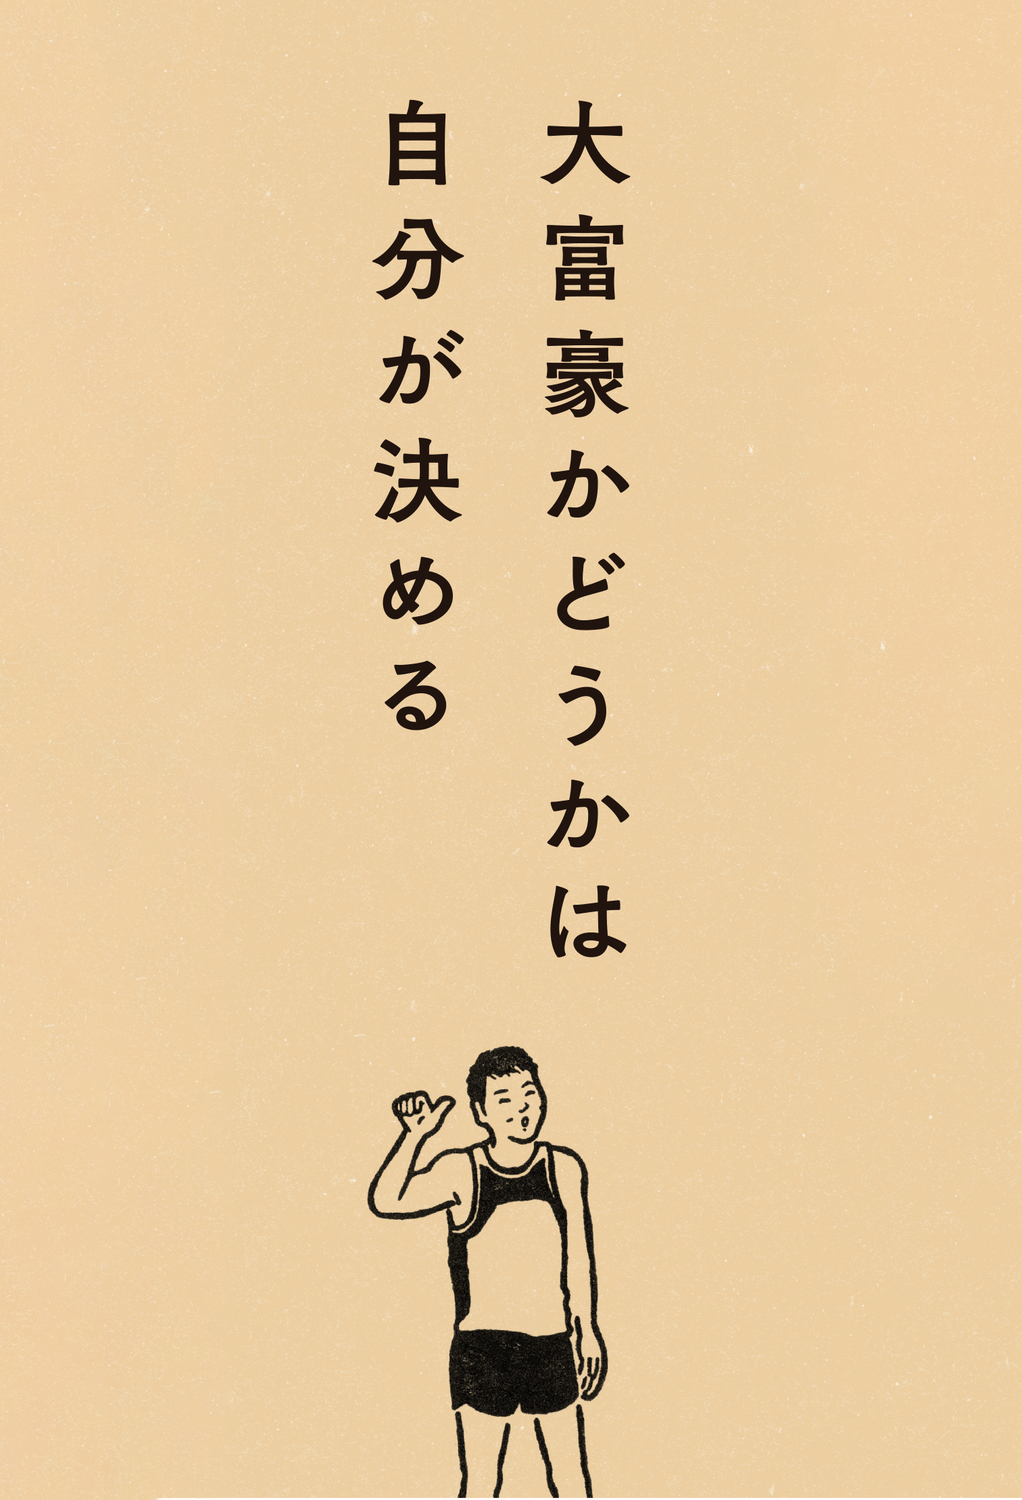 大富豪かどうかは
自分が決める